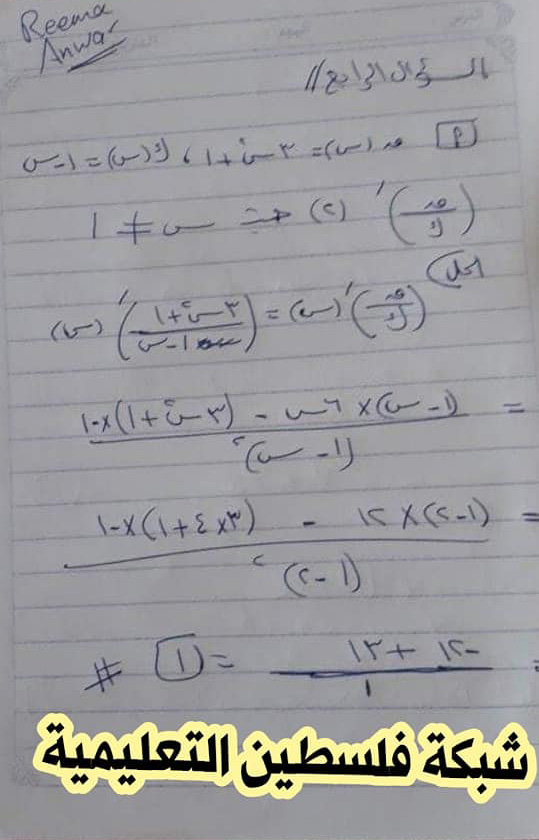 Reema
Anwar
السؤال الرابع //
أ ) ق(س) = ٣س٢ + ١ ، ك(س) = ١ - س
(ق/ك)′ (٢) حيث س ≠ ١
الحل
(ق/ك)′ (س) = ((٣س٢ + ١)/(١ - س))′ (س)
= ((١ - س) × ٦س - (٣س٢ + ١) × -١) / (١ - س)٢
= ((١ - ٢) × ١٢ - (٣ × ٤ + ١) × -١) / (١ - ٢)٢
= (-١٢ + ١٣) / ١ = ١ #
شبكة فلسطين التعليمية